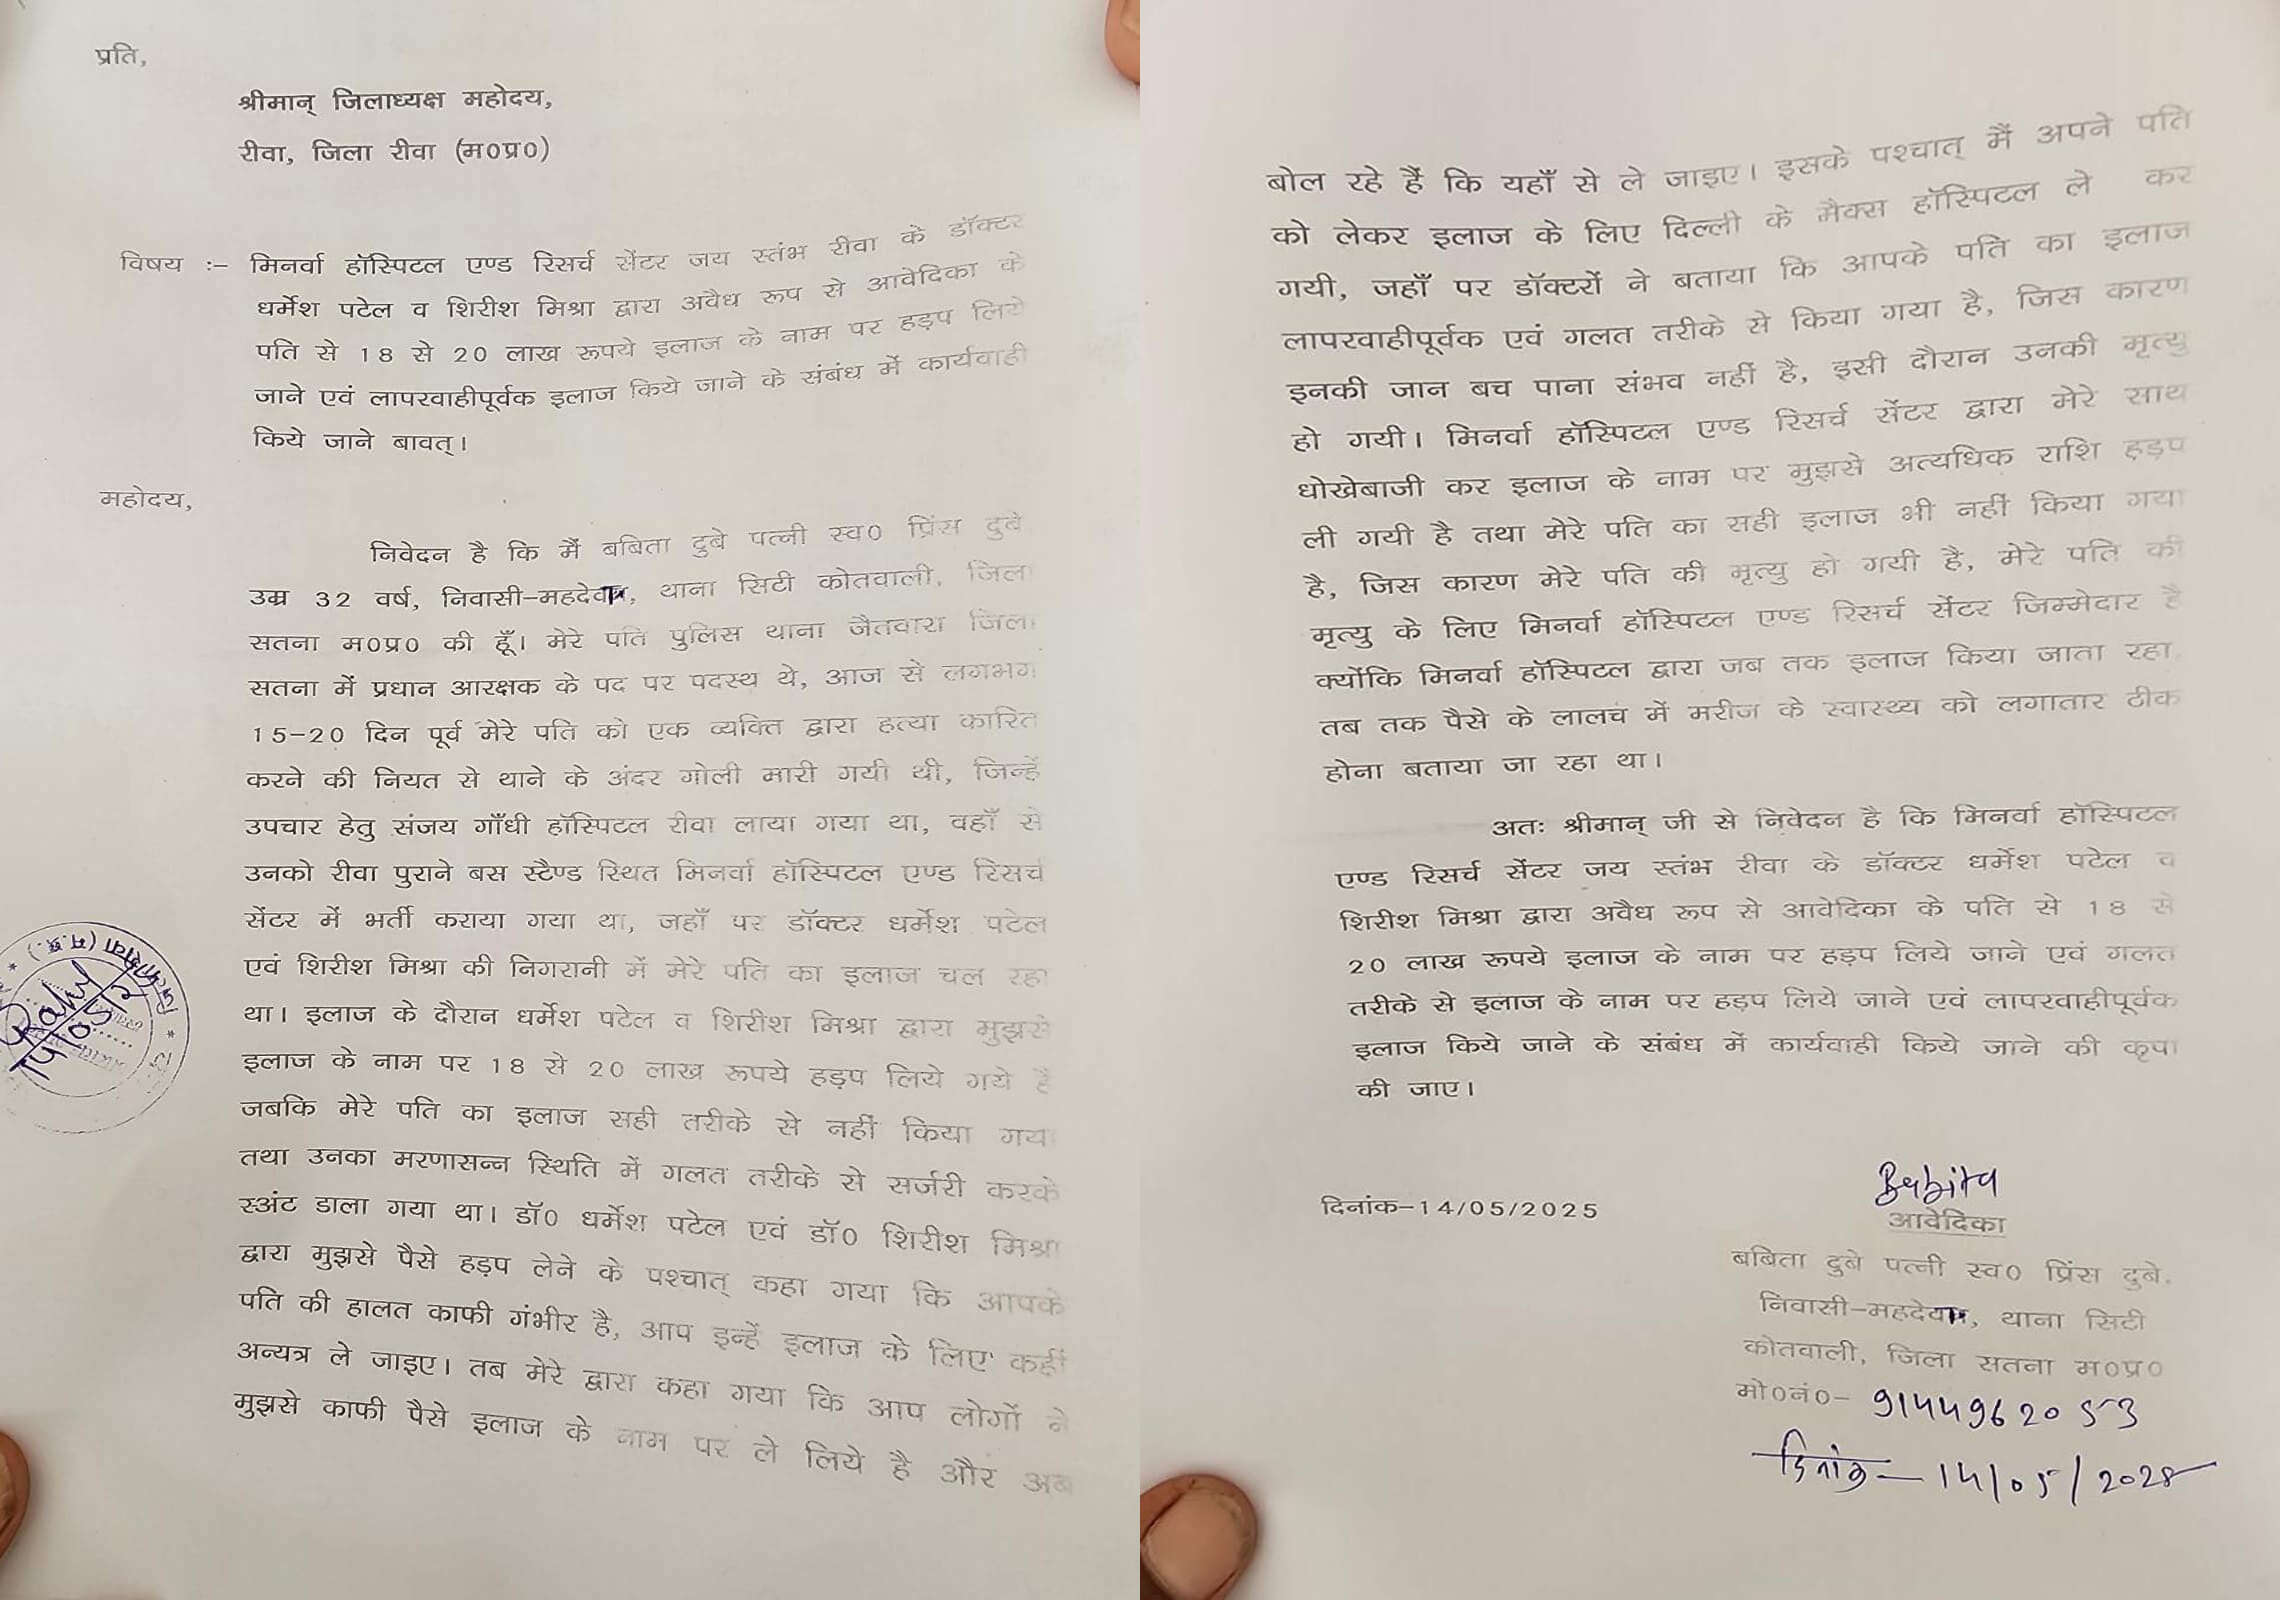 प्रति,
श्रीमान् जिलाध्यक्ष महोदय,
रीवा, जिला रीवा (म0प्र0)
विषय :- मिनर्वा हॉस्पिटल एण्ड रिसर्च सेंटर जय स्तंभ रीवा के डॉक्टर
धर्मेश पटेल व शिरीश मिश्रा द्वारा अवैध रूप से आवेदिका के
पति से 18 से 20 लाख रूपये इलाज के नाम पर हड़प लिये
जाने एवं लापरवाहीपूर्वक इलाज किये जाने के संबंध में कार्यवाही
किये जाने बावत्।
महोदय,
निवेदन है कि मैं बबिता दुबे पत्नी स्व0 प्रिंस दुबे
उम्र 32 वर्ष, निवासी-महदेवा, थाना सिटी कोतवाली, जिला
सतना म0प्र0 की हूँ। मेरे पति पुलिस थाना जैतवारा जिला
सतना में प्रधान आरक्षक के पद पर पदस्थ थे, आज से लगभग
15-20 दिन पूर्व मेरे पति को एक व्यक्ति द्वारा हत्या कारित
करने की नियत से थाने के अंदर गोली मारी गयी थी, जिन्हें
उपचार हेतु संजय गाँधी हॉस्पिटल रीवा लाया गया था, वहाँ से
उनको रीवा पुराने बस स्टैण्ड स्थित मिनर्वा हॉस्पिटल एण्ड रिसर्च
सेंटर में भर्ती कराया गया था, जहाँ पर डॉक्टर धर्मेश पटेल
एवं शिरीश मिश्रा की निगरानी में मेरे पति का इलाज चल रहा
था। इलाज के दौरान धर्मेश पटेल व शिरीश मिश्रा द्वारा मुझसे
इलाज के नाम पर 18 से 20 लाख रूपये हड़प लिये गये है
जबकि मेरे पति का इलाज सही तरीके से नहीं किया गया
तथा उनका मरणासन्न स्थिति में गलत तरीके से सर्जरी करके
स्अंट डाला गया था। डॉ0 धर्मेश पटेल एवं डॉ0 शिरीश मिश्रा
द्वारा मुझसे पैसे हड़प लेने के पश्चात् कहा गया कि आपके
पति की हालत काफी गंभीर है, आप इन्हें इलाज के लिए कहीं
अन्यत्र ले जाइए। तब मेरे द्वारा कहा गया कि आप लोगों ने
मुझसे काफी पैसे इलाज के नाम पर ले लिये है और अब
बोल रहे हैं कि यहाँ से ले जाइए। इसके पश्चात् मैं अपने पति
को लेकर इलाज के लिए दिल्ली के मैक्स हॉस्पिटल ले कर
गयी, जहाँ पर डॉक्टरों ने बताया कि आपके पति का इलाज
लापरवाहीपूर्वक एवं गलत तरीके से किया गया है, जिस कारण
इनकी जान बच पाना संभव नहीं है, इसी दौरान उनकी मृत्यु
हो गयी। मिनर्वा हॉस्पिटल एण्ड रिसर्च सेंटर द्वारा मेरे साथ
धोखेबाजी कर इलाज के नाम पर मुझसे अत्यधिक राशि हड़प
ली गयी है तथा मेरे पति का सही इलाज भी नहीं किया गया
है, जिस कारण मेरे पति की मृत्यु हो गयी है, मेरे पति की
मृत्यु के लिए मिनर्वा हॉस्पिटल एण्ड रिसर्च सेंटर जिम्मेदार है
क्योंकि मिनर्वा हॉस्पिटल द्वारा जब तक इलाज किया जाता रहा,
तब तक पैसे के लालच में मरीज के स्वास्थ्य को लगातार ठीक
होना बताया जा रहा था।
अतः श्रीमान् जी से निवेदन है कि मिनर्वा हॉस्पिटल
एण्ड रिसर्च सेंटर जय स्तंभ रीवा के डॉक्टर धर्मेश पटेल व
शिरीश मिश्रा द्वारा अवैध रूप से आवेदिका के पति से 18 से
20 लाख रूपये इलाज के नाम पर हड़प लिये जाने एवं गलत
तरीके से इलाज के नाम पर हड़प लिये जाने एवं लापरवाहीपूर्वक
इलाज किये जाने के संबंध में कार्यवाही किये जाने की कृपा
की जाए।
Babita
दिनांक-14/05/2025
आवेदिका
बबिता दुबे पत्नी स्व0 प्रिंस दुबे.
निवासी-महदेवा, थाना सिटी
कोतवाली, जिला सतना म0प्र0
मो0नं0- 9144962053
दिनांक - 14/05/2025